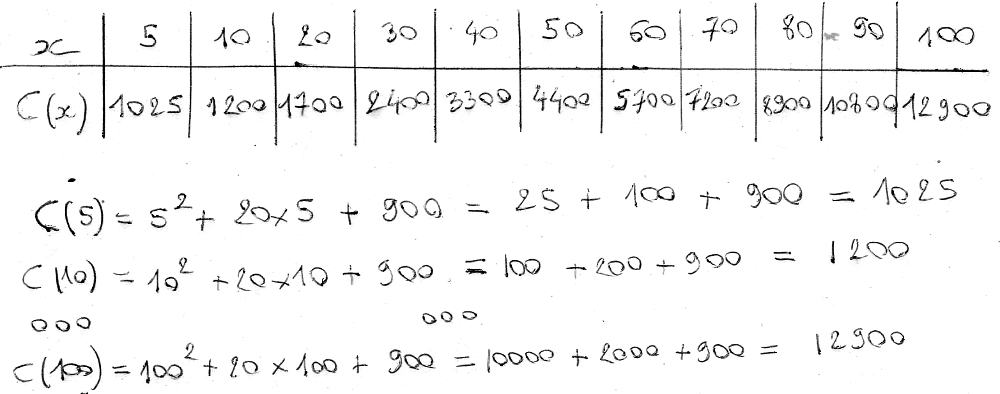 x 5 10 20 30 40 50 60 70 80 90 100
C(x) 1025 1200 1700 2400 3300 4400 5700 7200 8900 10800 12900
C(5) = 5² + 20×5 + 900 = 25 + 100 + 900 = 1025
C(10) = 10² + 20×10 + 900 = 100 + 200 + 900 = 1200
ooo ooo
C(100) = 100² + 20 × 100 + 900 = 10000 + 2000 + 900 = 12900